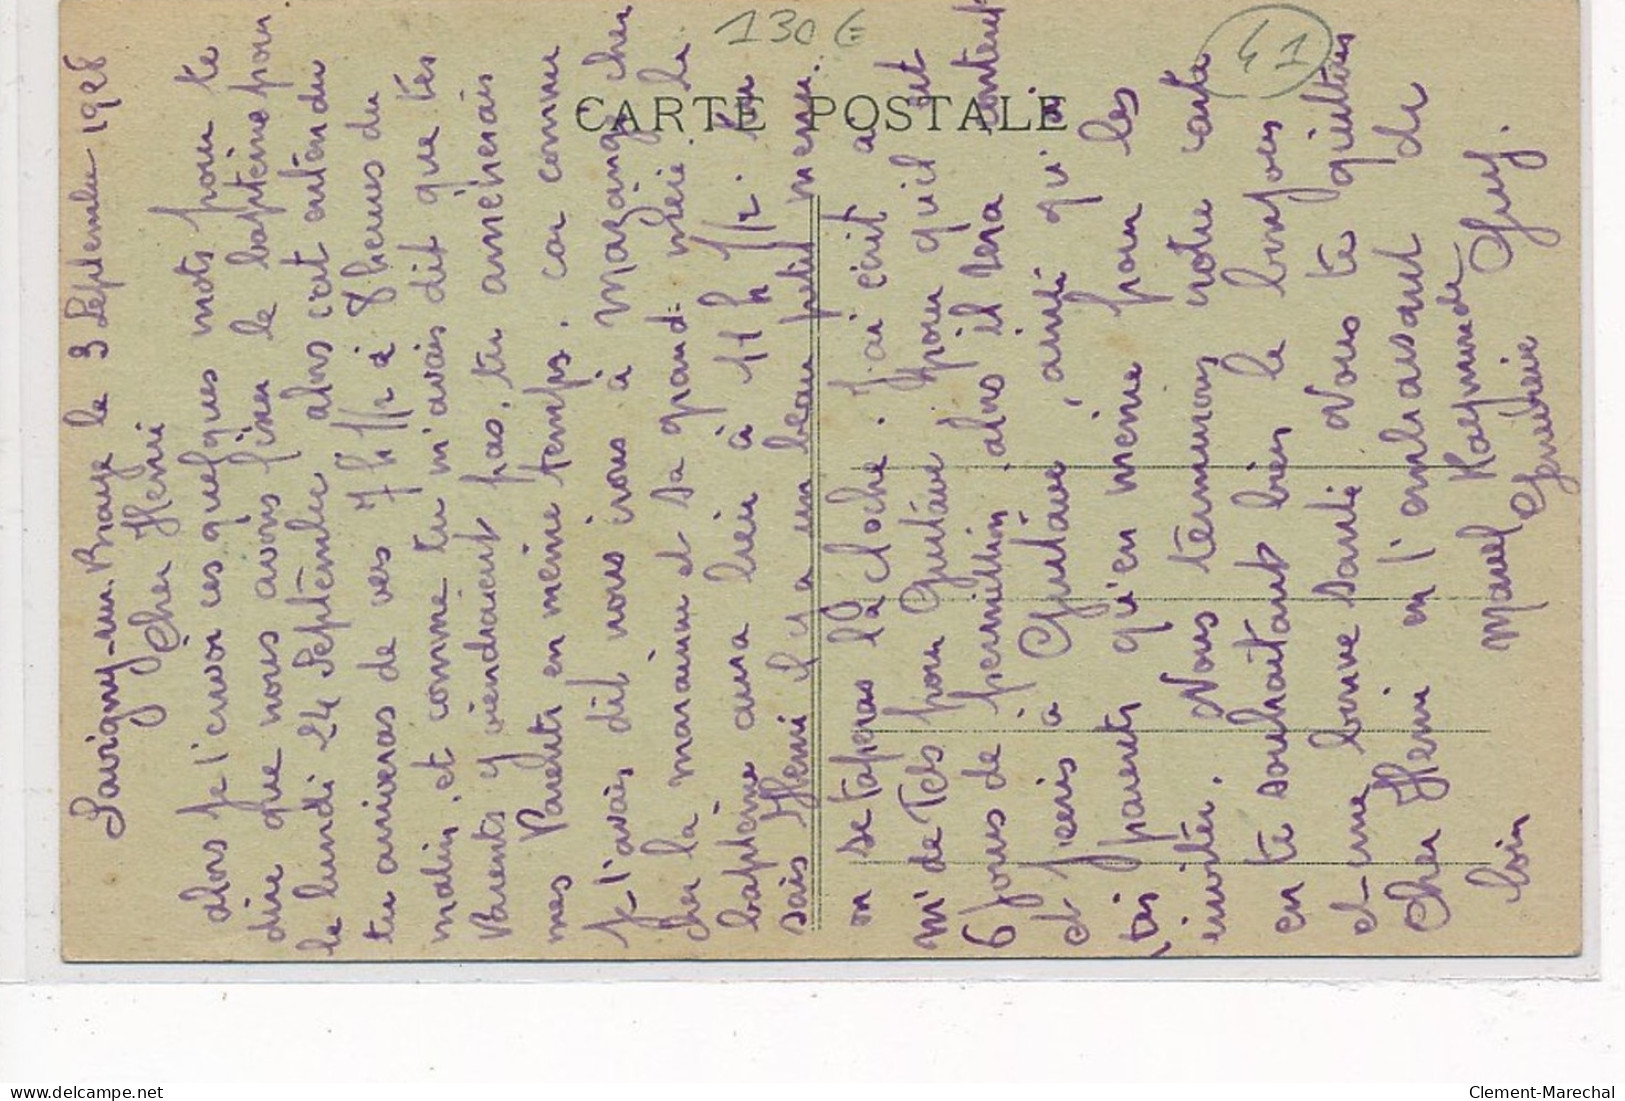 CARTE POSTALE
130 €
41
Savigny-sur-Braye le 3 Septembre 1928
Cher Henri
alors je t'envoi ces quelques mots pour te
dire que nous avons fixer le baptême pour
le lundi 24 Septembre alors c'est entendu
tu arriveras de vers 7 h 1/2 à 8 heures du
matin. et comme tu m'avais dit que tes
Parents y viendraient pas. tu amènerais
mes Parents en même temps. car comme
je t'avais dit nous irons à Mazangé cher
cher la marraine et sa grand-mère. le
baptême aura lieu à 11 h 1/2. tu
sais Henri il y a un beau petit menu.
on se tapera la cloche. J'ai écrit a cet
m' de Tels pour Gustave pour qu'il ait
6 jours de permission alors il sera content
et j'écris à Gustave, ainsi qu'à
tes parents qu'en même pour les
inviter. Nous terminons notre carte
en te souhaitant bien le bonjour
et une bonne santé Nous te quittons
Cher Henri en t'embrassant de
loin Marcel Raymonde
Geneviève Guy.
Clement-Marechal